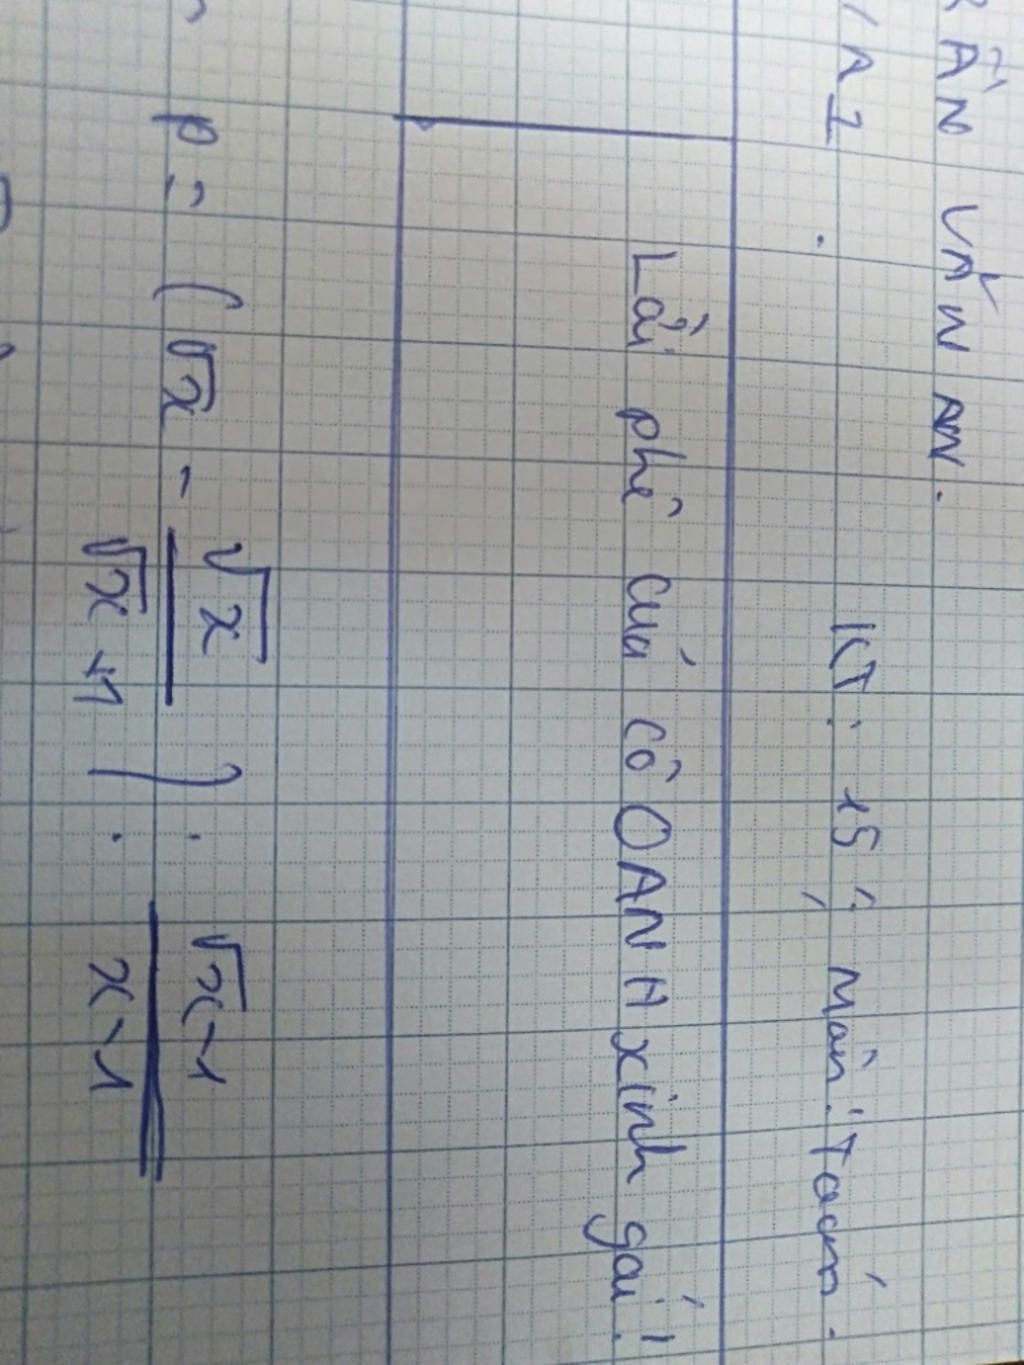 ẦN VĂN AN.
/A1.
KT: 15'; Môn: Toán.
Lời phê của cô OANH xinh gái!
P = (√x - √x / √x +1) : √x-1 / x-1